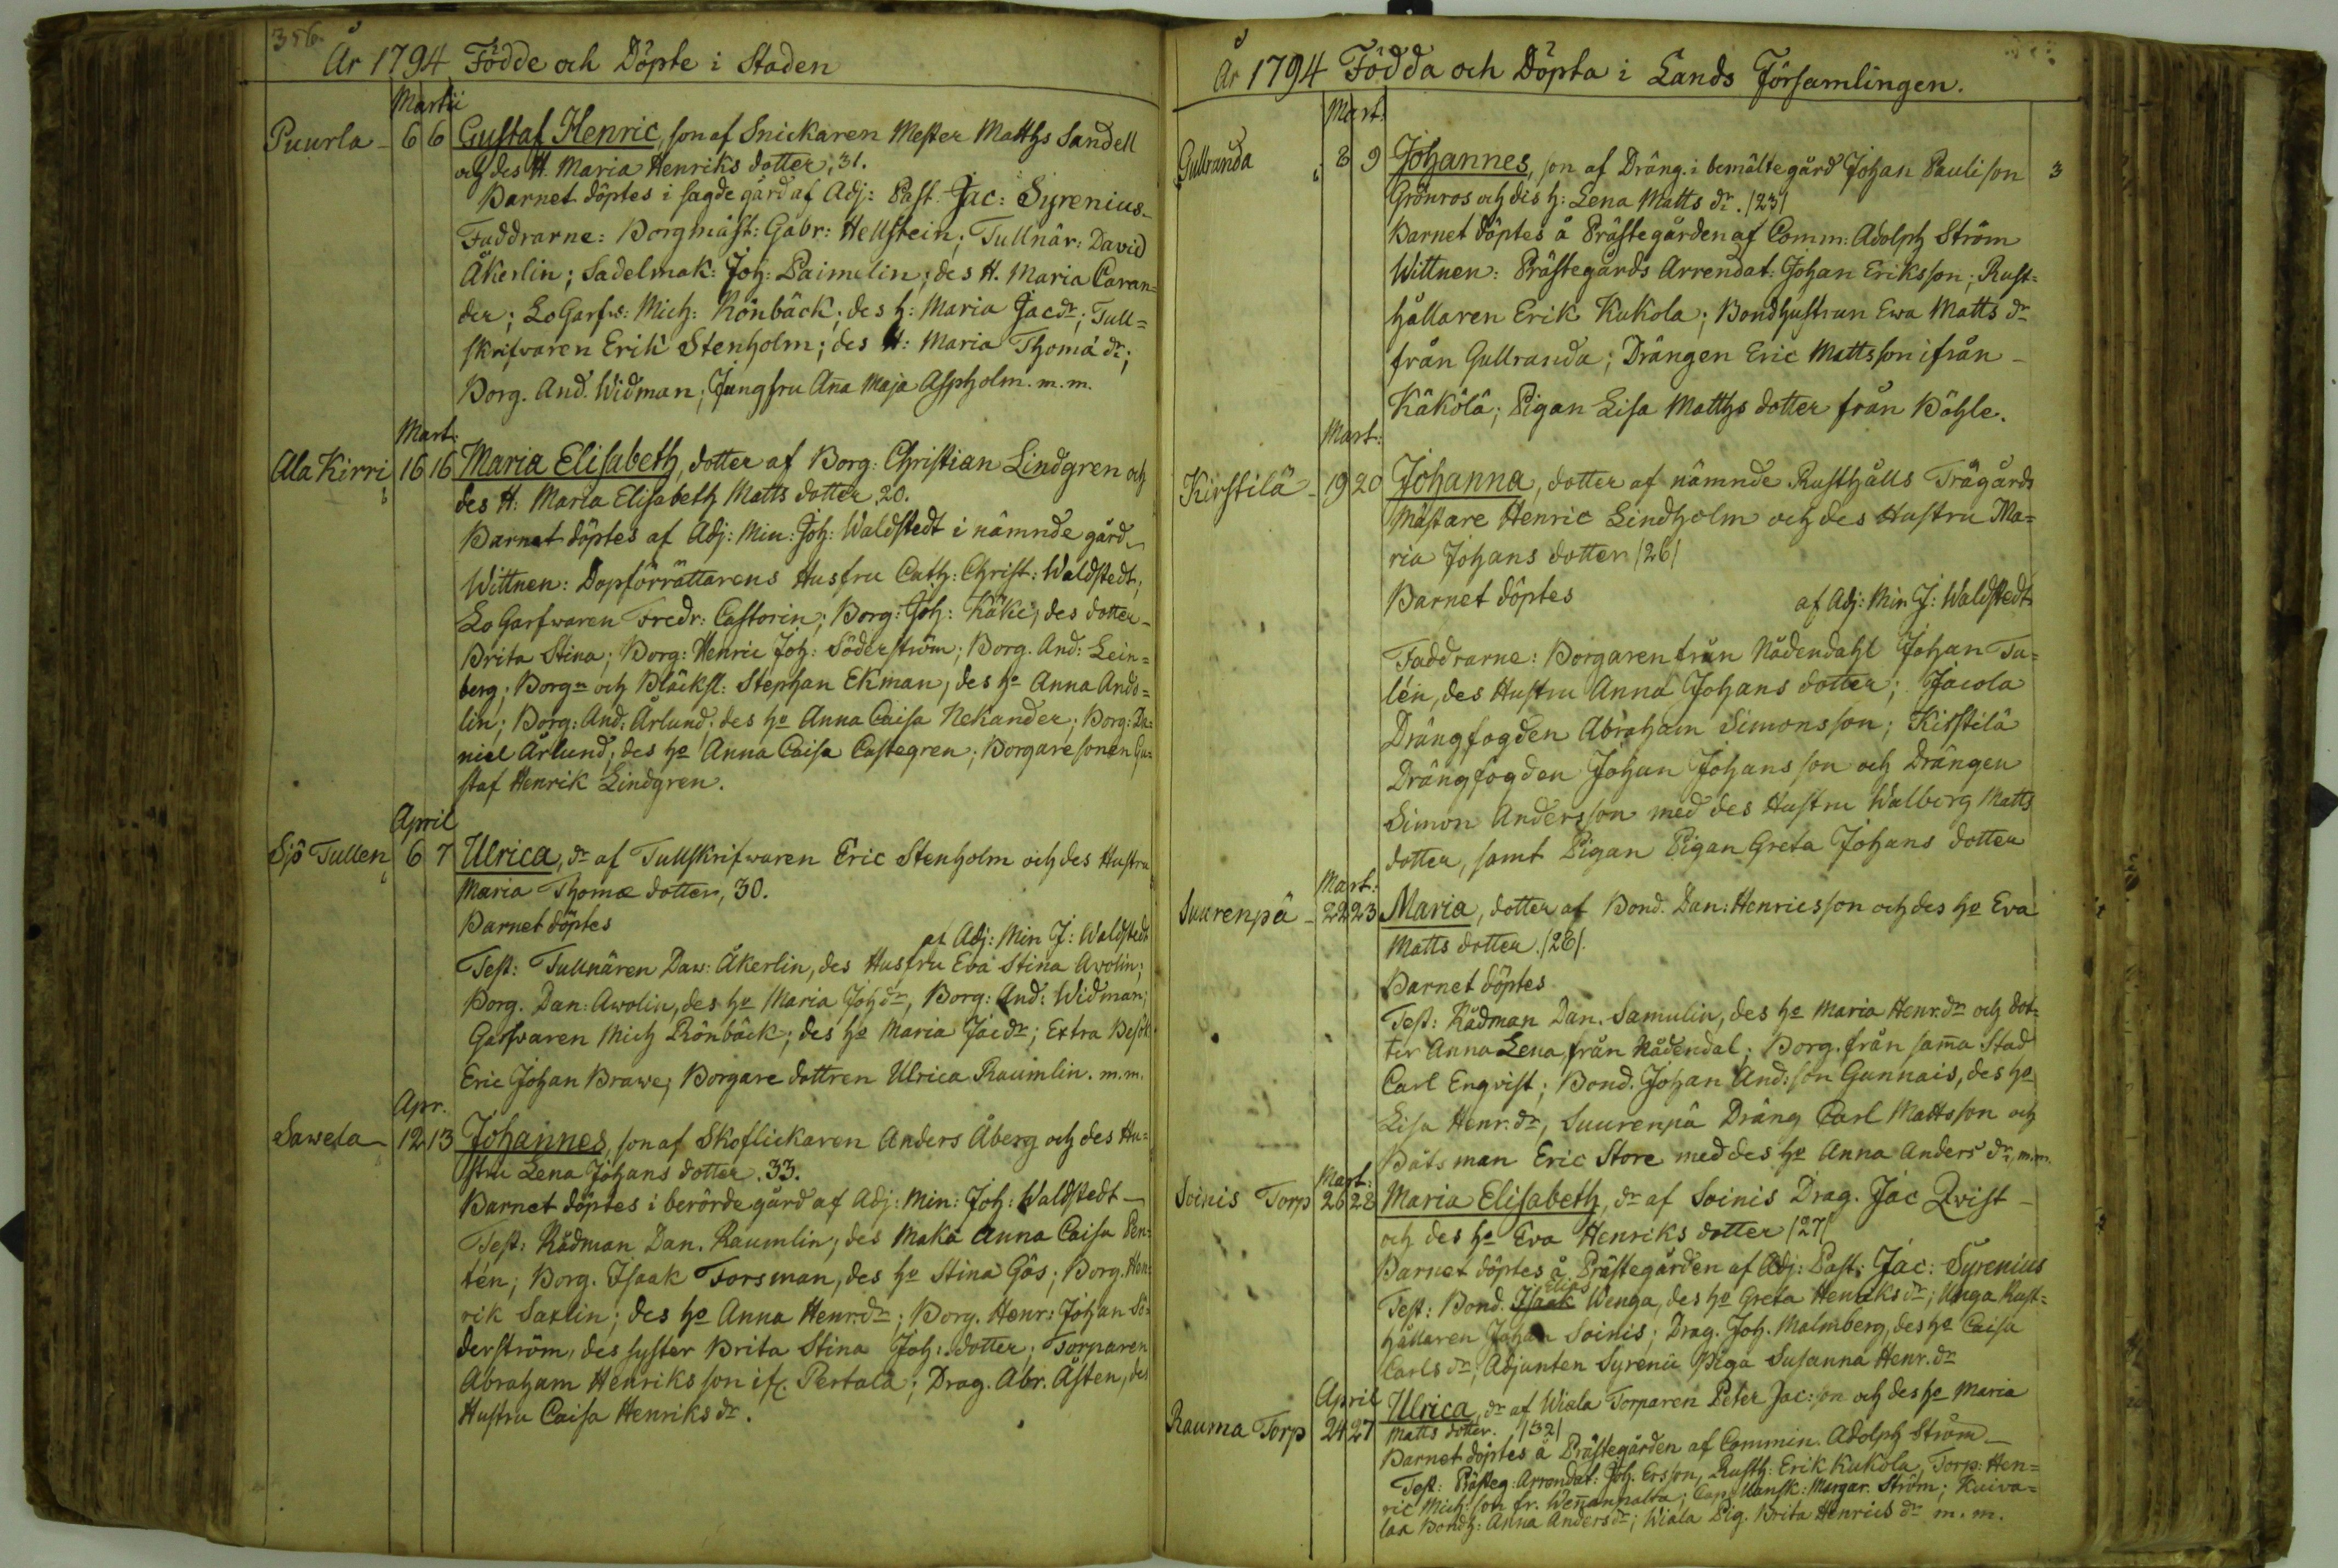 356.
År 1794 Födde och Döpte i Staden
Martii
Puurla - 6 6 Gustaf Henric, son af Snickaren Mester Matths Sandell
och des H. Maria Henriks dotter, 31.
Barnet döptes i sagde gård af Adj: Past. Jac: Syrenius -
Faddrarne: Borgmäst: Gabr: Hellstein; Tullnär: David
Åkerlin; Sadelmak: Joh: Paimelin; des H. Maria Caran=
der; LoGarfv: Mich: Rönbäck; des h: Maria Jacdr; Tull=
skrifvaren Erik Stenholm; des H: Maria Thomä dr;
Borg. And. Widman; Jungfru Aña Maja Aspholm. m.m.
Mart:
Ala Kirri 16 16 Maria Elisabeth, dotter af Borg: Christian Lindgren och
des H: Maria Elisabeth Matts dotter, 20.
Barnet döptes af Adj: Min: Joh: Waldstedt i nämnde gård -
Wittnen: Dopförrättarens Husfru Cath: Christ: Waldstedt;
LoGarfwaren Fredr: Castorin; Borg: Joh: Käki; des dotter -
Brita Stina; Borg: Henric Joh: Söderström; Borg. And: Lein=
berg; Borgn och Bläcksl: Stephan Ekman, des ho Anna Ands=
lin; Borg: And: Arlund; des ho Anna Caisa Nekander; Borg: Da=
niel Ärlund; des ho Anna Caisa Castegren; Borgaresonen Gu=
staf Henrik Lindgren.
April
Sjö Tullen 6 7 Ulrica, dr af Tullskrifwaren Eric Stenholm och des Hustru
Maria Thomæ dotter, 30.
Barnet döptes af Adj: Min J: Waldstedt
Test: Tullnären Daw: Åkerlin, des Husfru Eva Stina Awolin;
Borg. Dan: Awolin, des ho Maria Joh dr, Borg: And: Widman;
Garfwaren Mich Rönbäck; des ho Maria Jacdr; Extra Besök
Eric Johan Brawe; Borgare dottren Ulrica Raumlin. m.m.
Apr.
Sawela - 12 13 Johannes, son af Skoflickaren Anders Åberg och des Hu=
stru Lena Johans dotter. 33.
Barnet döptes i berörde gård af Adj: Min: Joh: Waldstedt -
Test: Rådman Dan. Raumlin; des Maka Anna Caisa Pen=
tén; Borg. Isaak Forsman, des ho Stina Gås; Borg. Hen=
rik Saxlin; des ho Anna Henr.dr; Borg. Henr: Johan Sö=
derström, des syster Brita Stina Joh: dotter; Torparen
Abraham Henriksson if: Pertala; Drag. Abr. Åsten, des
Hustru Caisa Henriks dr.
År 1794 Födda och Döpta i Lands Församlingen.
Mart.
Gullranda 8 9 Johannes, son af Dräng. i bemälte gård Johan Paulison 3
Grönros och des h: Lena Matts dr. /23/
Barnet döptes å Prästegården af Comm: Adolph Ström
Wittnen: Prästegårds Arrendat: Johan Eriksson; Rust=
hållaren Erik Kukola; Bondhustrun Ewa Matts dr
från Gullranda; Drängen Eric Mattsson ifrån -
Käkölä; Pigan Lisa Matths dotter från Böhle.
Mart:
Kirstilä - 19 20 Johanna, dotter af nämnde Rusthålls Trägårds
Mästare Henric Lindholm och des Hustru Ma=
ria Johans dotter /26/
Barnet döptes af Adj: Min J: Waldstedt
Faddrarne: Borgaren från Nådendahl Johan Tu=
lén, des Hustru Anna Johans dotter; Jacola
Drängfogden Abraham Simonsson; Kirstilä
Drängfogden Johan Johansson och Drängen
Simon Andersson med des Hustru Walborg Matts
dotter, samt Pigan Pigan Greta Johans dotter
Mart:
Suurenpä - 22 23 Maria, dotter af Bond. Dan: Henricsson och des ho Eva
Matts dotter. /28/.
Barnet döptes
Test: Rådman Dan. Samulin, des ho Maria Henr.dr och dot=
ter Anna Lena, från Nådendal; Borg. från sam̃a Stad
Carl Enqvist; Bond. Johan And:son Gunnais, des ho
Lisa Henr.dr, Suurenpä Dräng Carl Mattsson och
Båtsman Eric Store med des ho Anna Anders dr, m.m.
Mart:
Soinis Torp 26 28 Maria Elisabeth, dr af Soinis Drag. Jac Qvist -
och des ho Eva Henriks dotter /27/
Barnet döptes å Prästegården af Adj: Past: Jac: Syrenius
Elias
Test: Bond. Isaak Wenga, des ho Greta Henriks dr; Unga Rust=
hållaren Johan Soinis; Drag. Joh. Malmberg, des ho Caisa
Carls dr; Adjunten Syrenii Piga Susanna Henr.dr
April
Rauma Torp 24 27 Ulrica, dr af Wiala Torparen Peter Jac:son och des ho Maria
Matts dotter. /32/
Barnet döptes å Prästegården af Commin. Adolph Ström -
Test: Prästeg: Arrendat: Joh. Ersson, Rusth: Erik Kukola, Torp: Hen=
ric Mich:son fr. Weñanpalta; Capellansk: Margar. Ström; Kuiva=
laa Bondh: Anna Andersdr; Wiala Pig. Brita Henrics dr m. m.